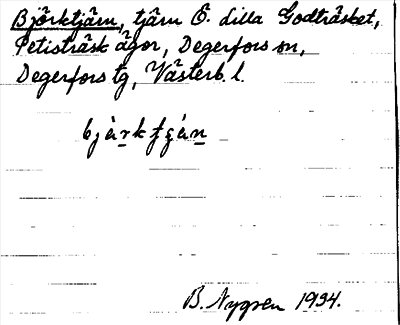 Björktjärn, tjärn Ö. Lilla Godträsket,
Petisträsk ägor, Degerfors sn,
Degerfors tg, Västerb. l.
B. Nygren 1934.